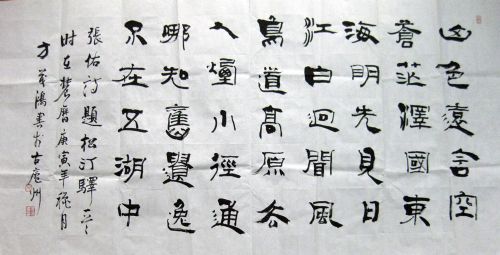 山色遠含空
蒼茫澤國東
海明先見日
江白迴聞風
鳥道高原去
人煙小徑通
哪知舊遺逸
不在五湖中
張祜詩題松汀驛
时在農曆庚寅年穐月
方 鴻書於古廬州